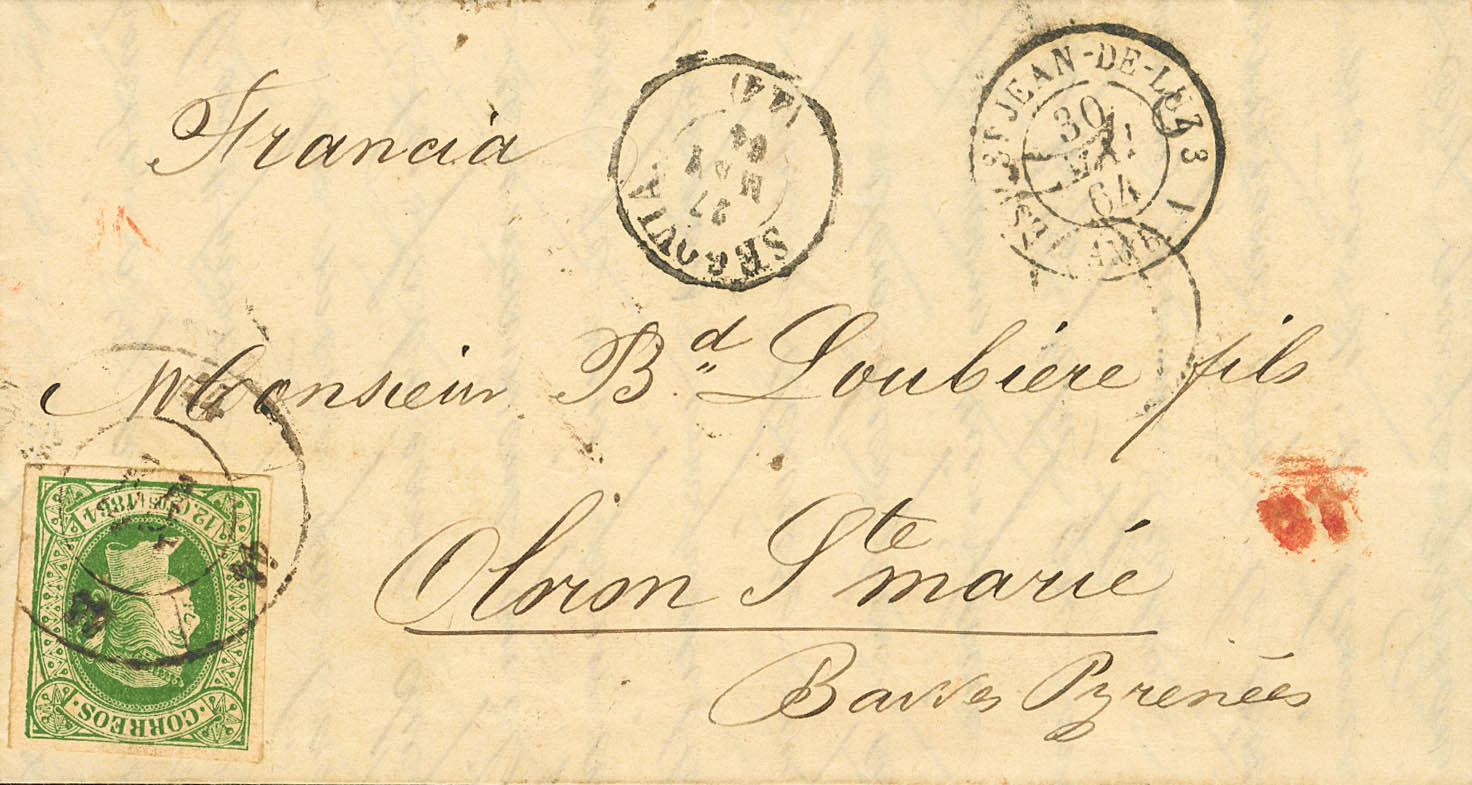 Francia
SEGOVIA
27
MAY
64
(44)
ST JEAN-DE-LUZ 3
30
MAI
64
Monsieur Bd Loubière fils
Oloron Ste marié
Basses Pyrenées
12 Cs 1864
CORREOS
44